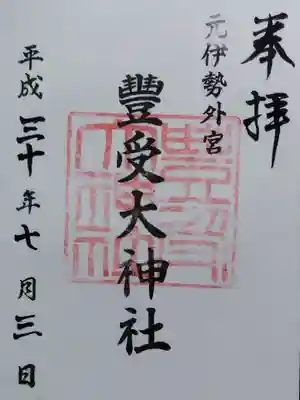 奉拝
元伊勢外宮
豐受大神社
平成三十年七月三日